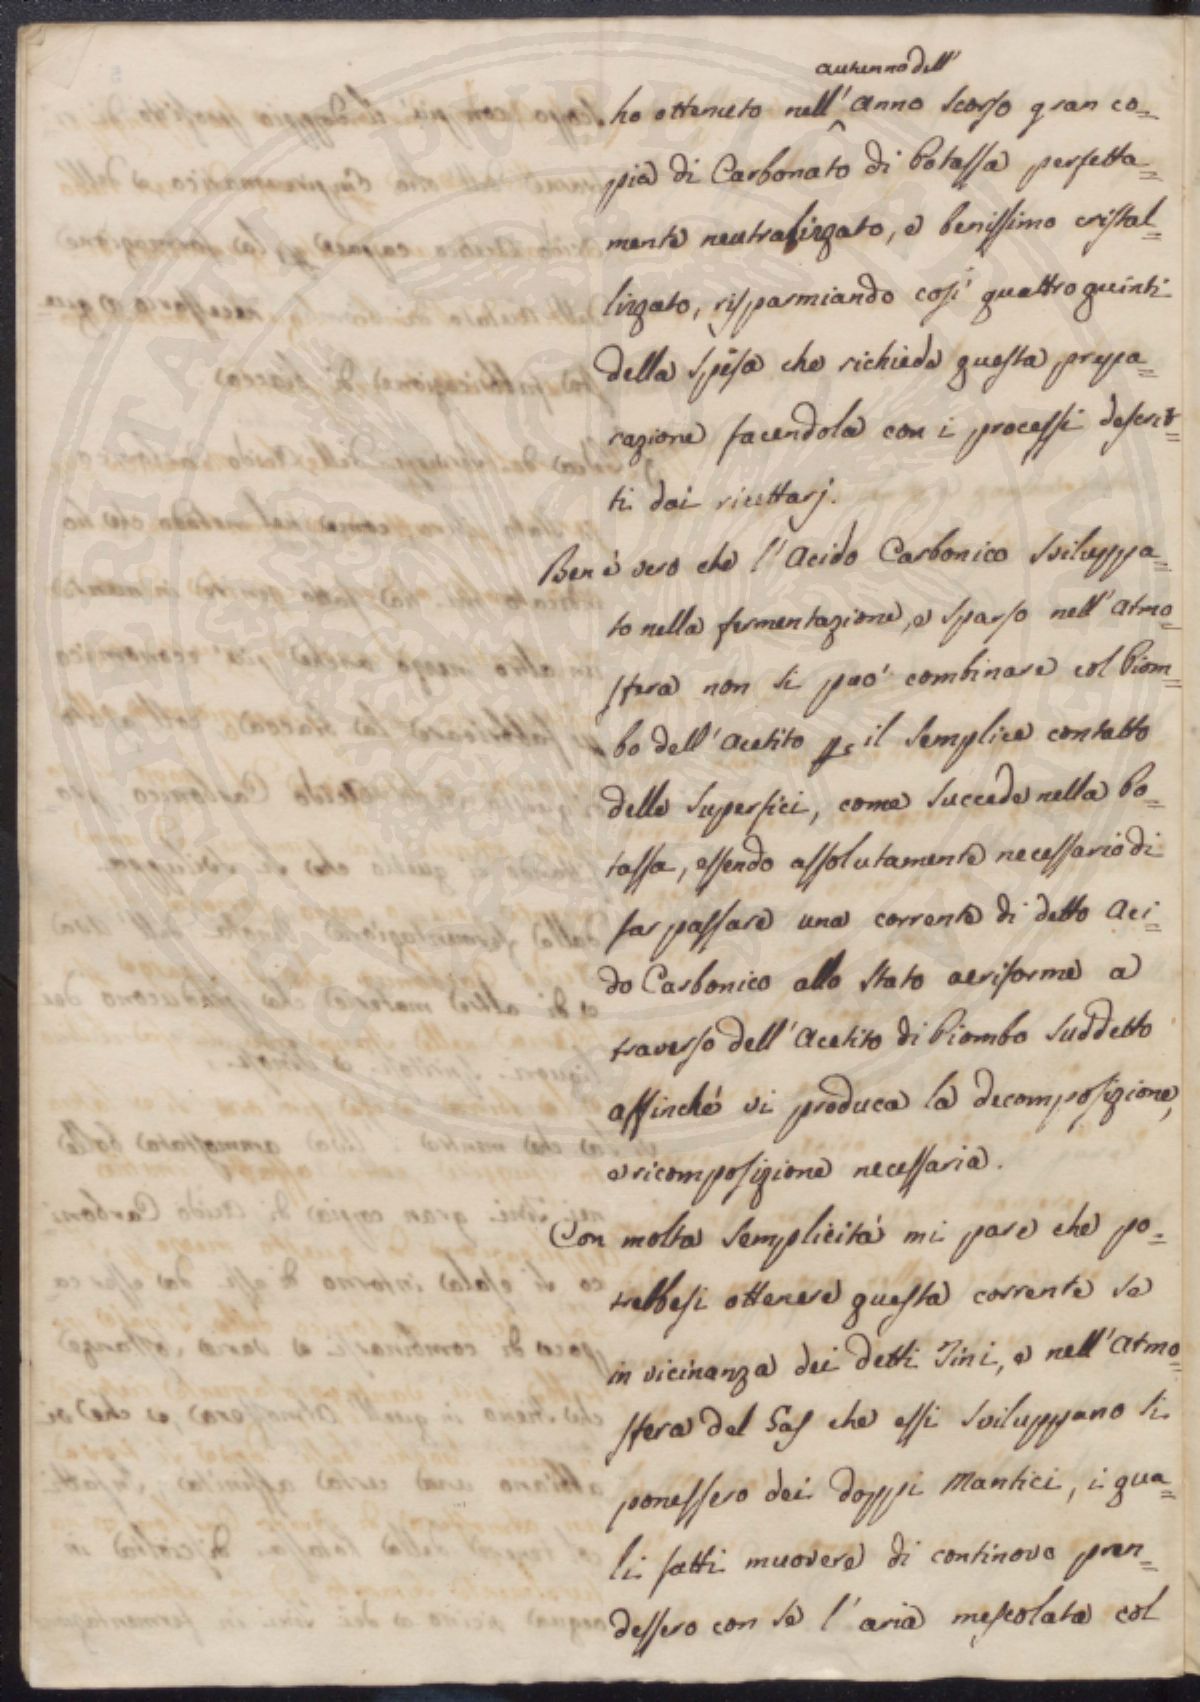 autunno dell'
ho ottenuto nell' Anno scorso gran co=
pia di Carbonato di Potassa perfetta=
mente neutralizzato, e benissimo cristal=
lizzato, risparmiando così quattro quinti
della spesa che richiede questa prepa=
razione facendola con i processi descrit=
ti dai ricettarj.
Ben è vero che l'Acido Carbonico sviluppa=
to nella fermentazione, e sparso nell'Atmo=
sfera non si può combinare col Piom=
bo dell'Acetito per il semplice contatto
delle superfici, come succede nella Po=
tassa, essendo assolutamente necessario di
far passare una corrente di detto Aci=
do Carbonico allo stato aeriforme a
traverso dell'Acetito di Piombo suddetto
affinché vi produca la decomposizione,
e ricomposizione necessaria.
Con molta semplicità mi pare che po=
trebbesi ottenere questa corrente se
in vicinanza dei detti Tini, e nell'Atmo=
sfera del Gas che essi sviluppano si
ponessero dei doppi Mantici, i qua=
li fatti muovere di continovo pren=
dessero con se l'aria mescolata col